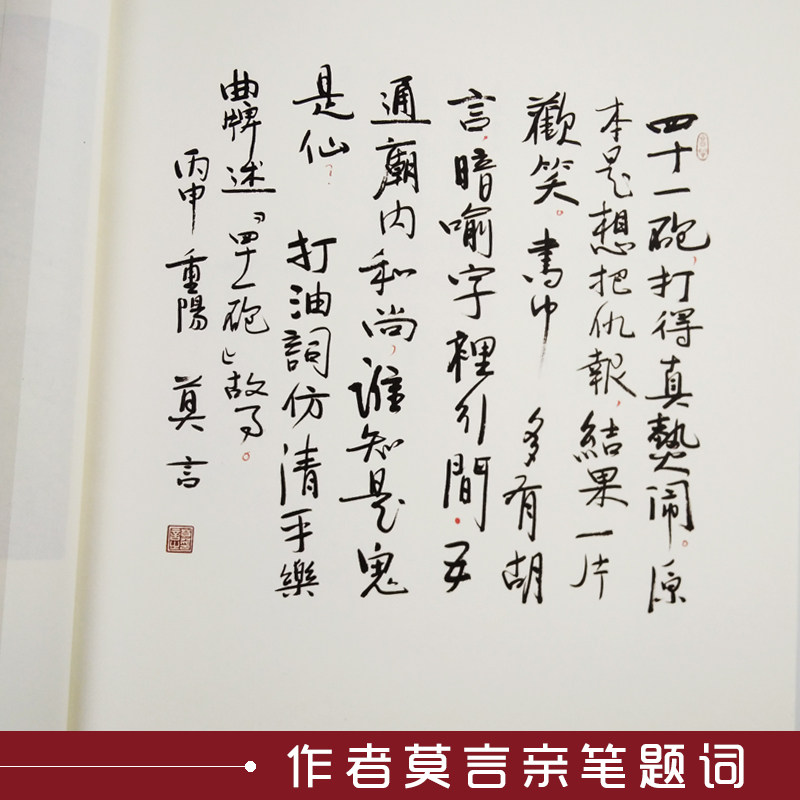 四十一砲，打得真熱鬧。原
本是想把仇報，結果一片
歡笑。書中多有胡
言，暗喻字裡引間。五
通廟内和尚，誰知是鬼
是仙？
打油詞仿清平樂
曲牌述『四十一砲』故事。
丙申重陽 莫言
作者莫言亲笔题词